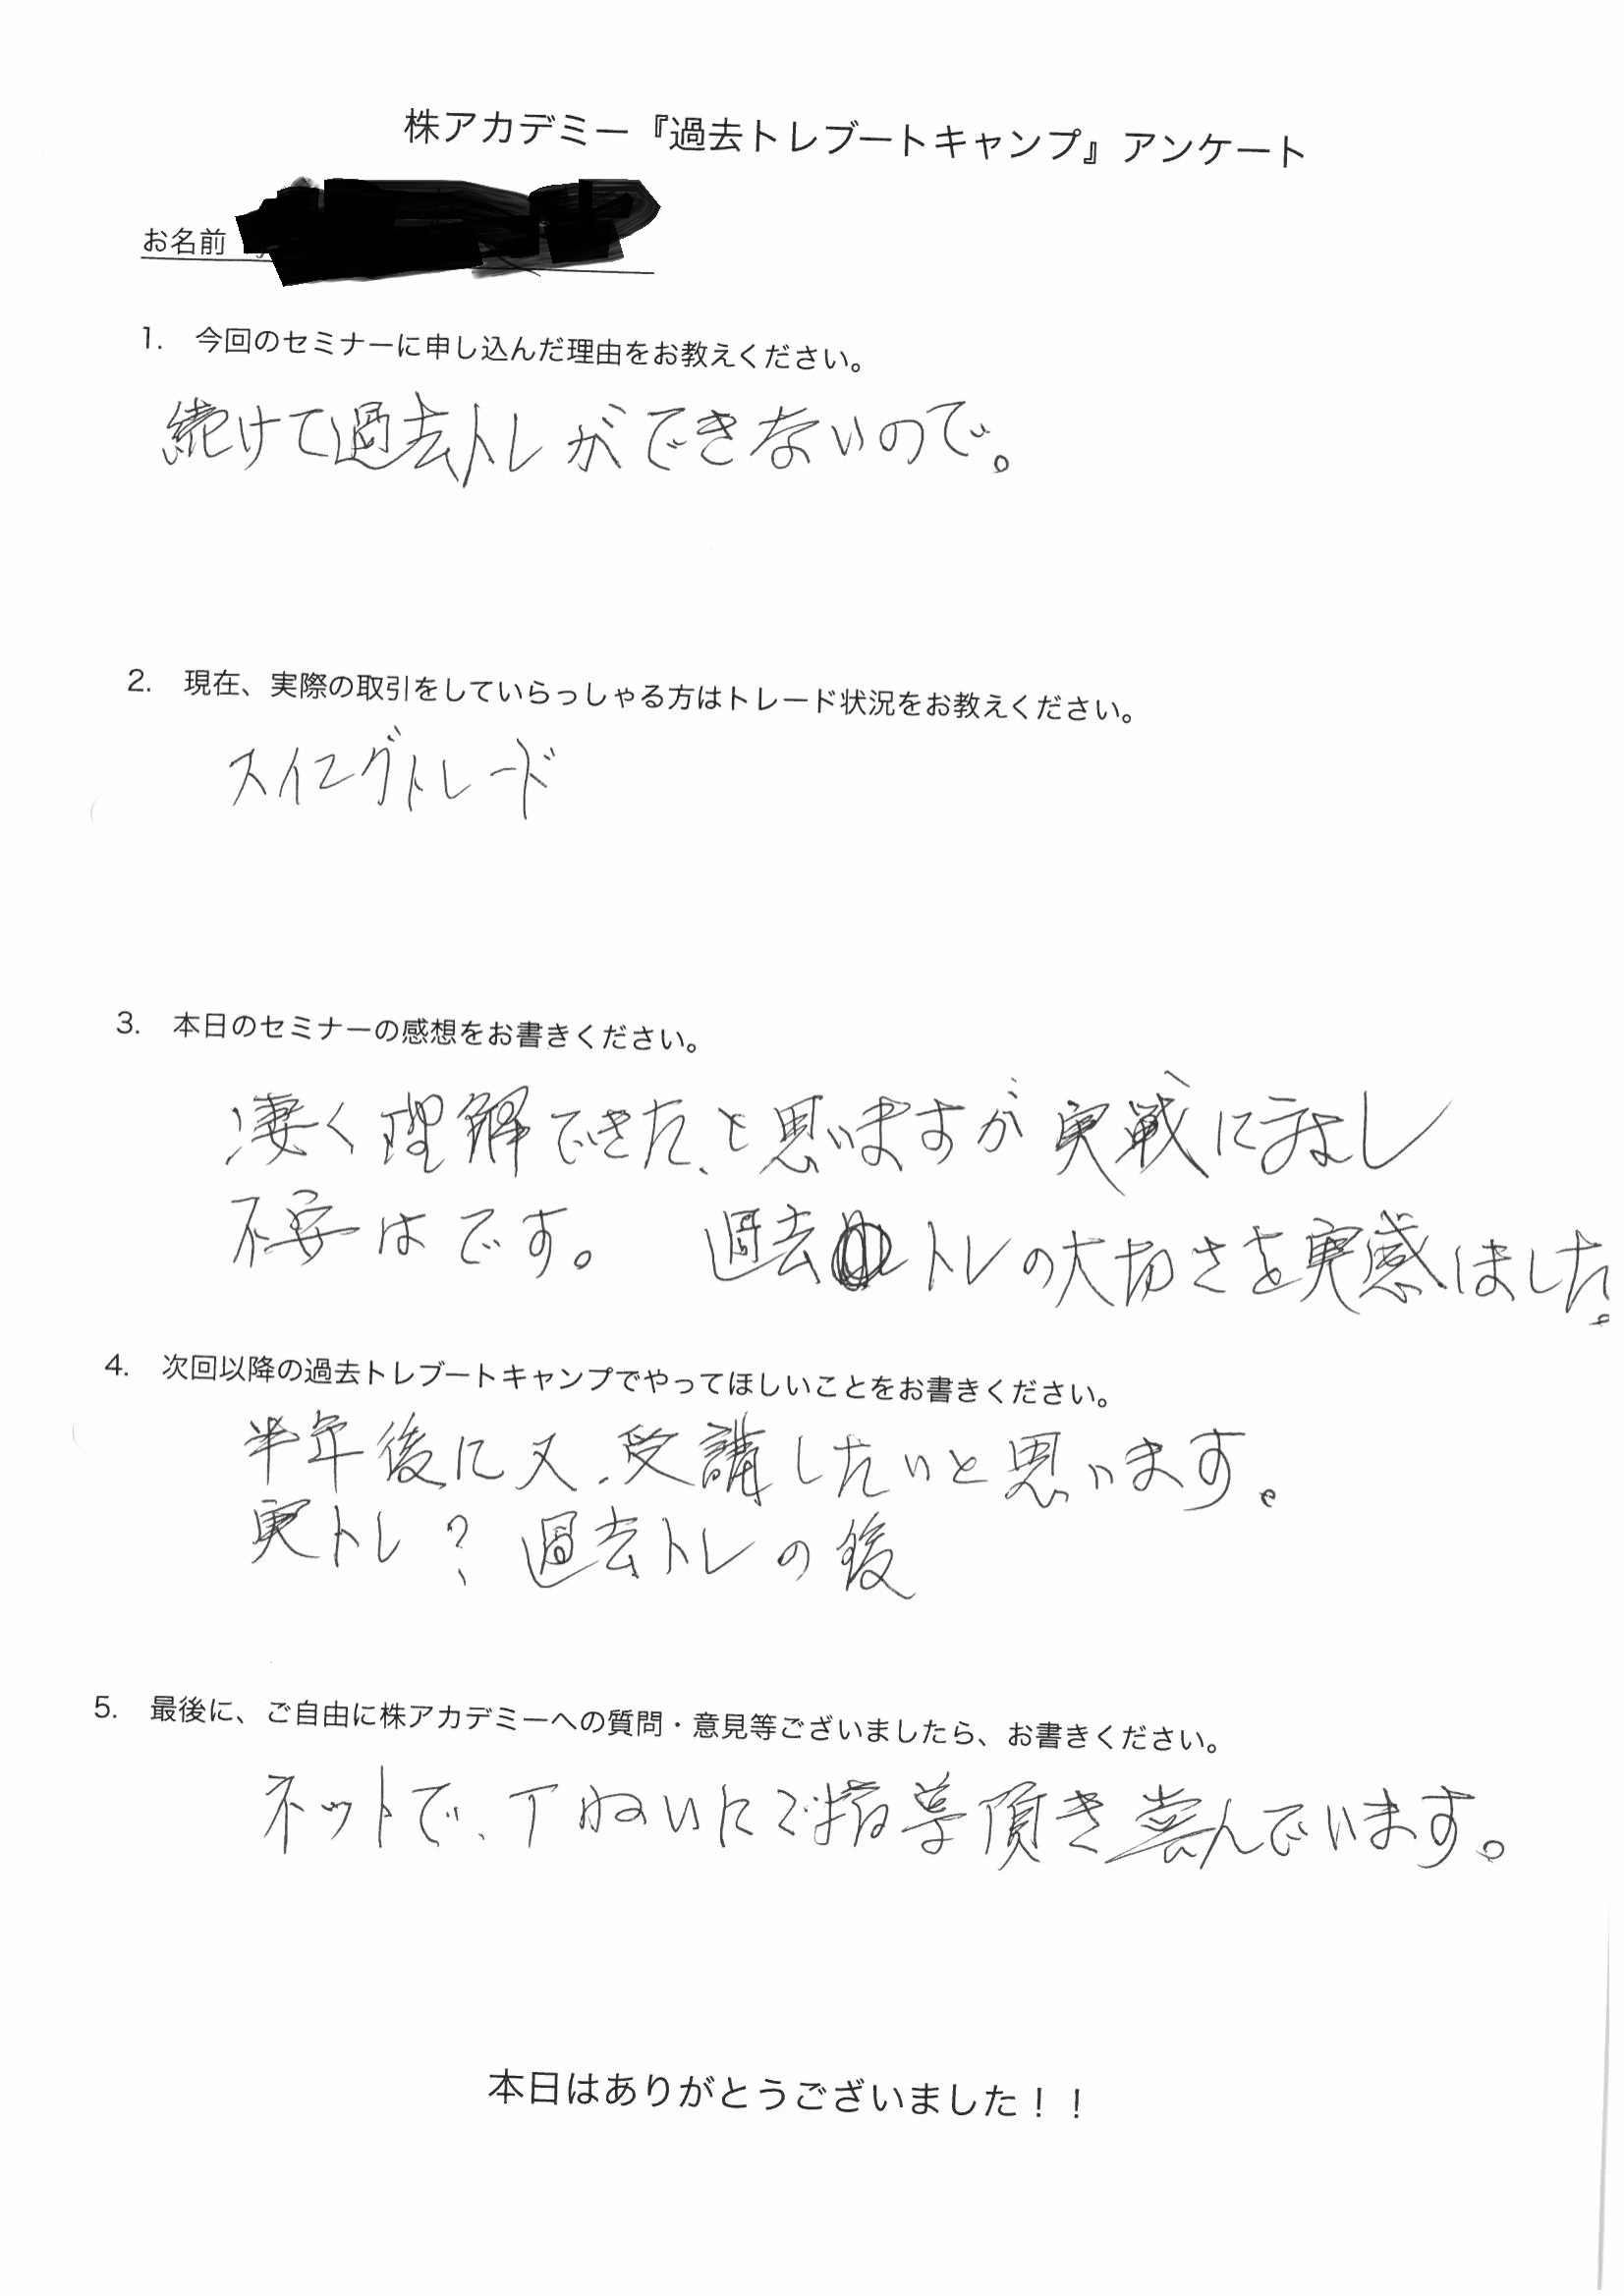 株アカデミー『過去トレブートキャンプ』アンケート
お名前
1. 今回のセミナーに申し込んだ理由をお教えください。
続けて過去トレができないので。
2. 現在、実際の取引をしていらっしゃる方はトレード状況をお教えください。
スイングトレード
3. 本日のセミナーの感想をお書きください。
凄く理解できた、と思いますが実戦に
不安はです。 過去トレの大切さを実感しました。
4. 次回以降の過去トレブートキャンプでやってほしいことをお書きください。
半年後に又、受講したいと思います。
実トレ? 過去トレの後
5. 最後に、ご自由に株アカデミーへの質問・意見等ございましたら、お書きください。
ネットで、丁ねいにご指導頂き喜んでいます。
本日はありがとうございました！！